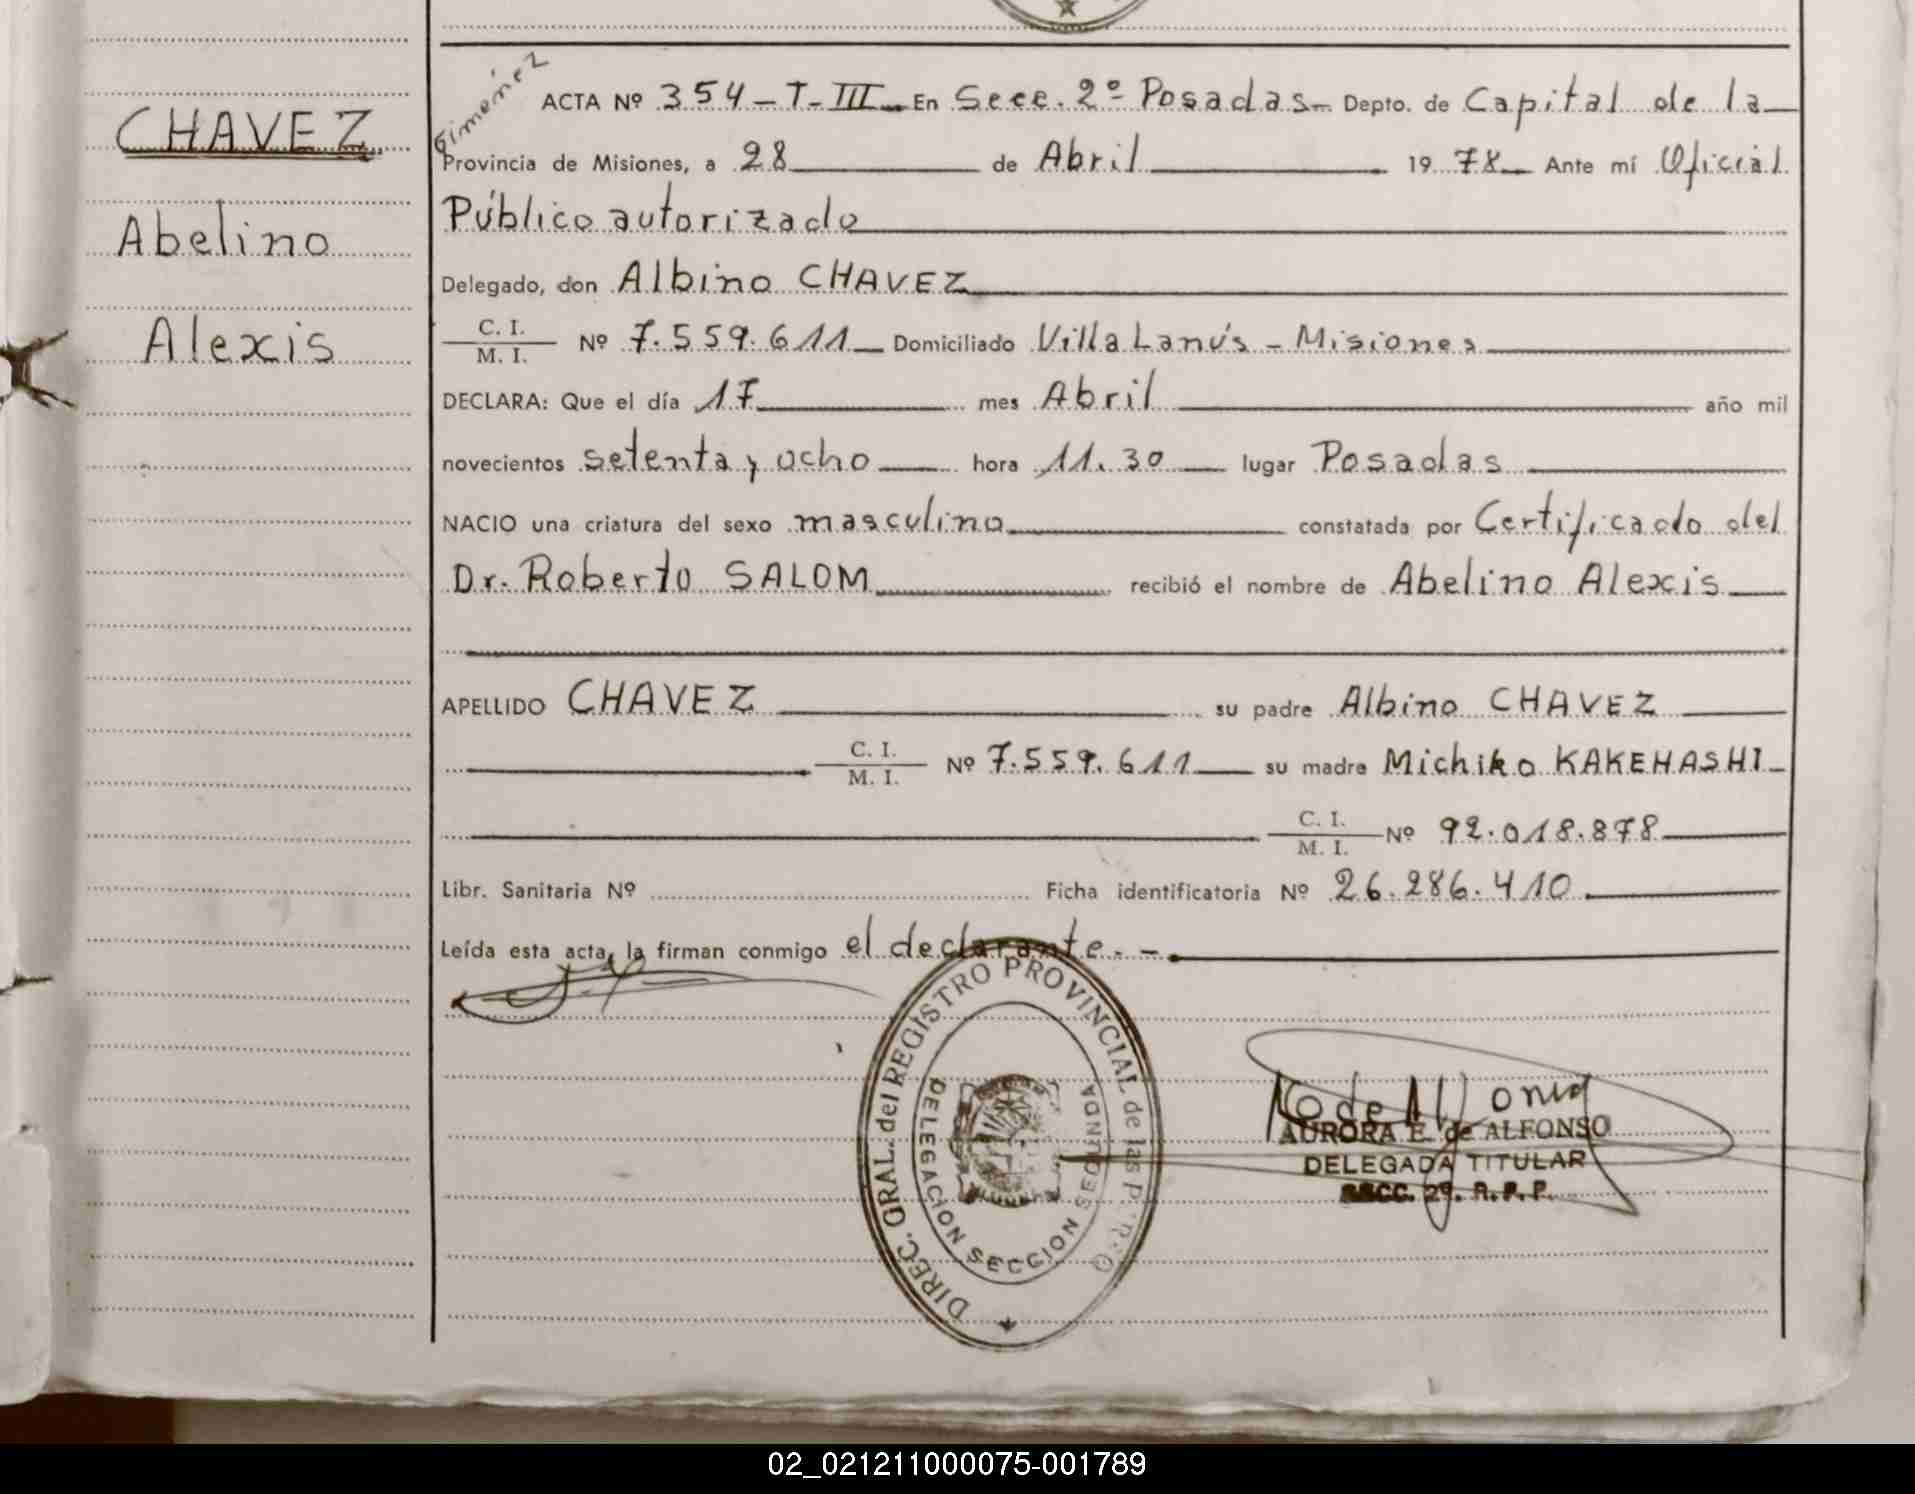 CHAVEZ
Abelino
Alexis
Gimenez
ACTA Nº 354 - T - III En Secc. 2º Posadas Depto. de Capital de la
Provincia de Misiones, a 28 de Abril 1978 Ante mí Oficial
Público autorizado
Delegado, don Albino CHAVEZ
C. I.
M. I. Nº 7.559.611 Domiciliado Villa Lanús - Misiones
DECLARA: Que el día 17 mes Abril año mil
novecientos setenta y ocho hora 11.30 lugar Posadas
NACIO una criatura del sexo masculino constatada por Certificado del
Dr. Roberto SALOM recibió el nombre de Abelino Alexis
APELLIDO CHAVEZ su padre Albino CHAVEZ
C. I.
M. I. Nº 7.559.611 su madre Michiko KAKEHASHI
C. I.
M. I. Nº 92.018.878
Libr. Sanitaria Nº Ficha identificatoria Nº 26.286.410
Leída esta acta, la firman conmigo el declarante. -
DIREC. GRAL. del REGISTRO PROVINCIAL de las P
DELEGACION SECCION SEGUNDA
AURORA E. de ALFONSO
DELEGADA TITULAR
SECC. 2ª. R. P. P.
02_021211000075-001789